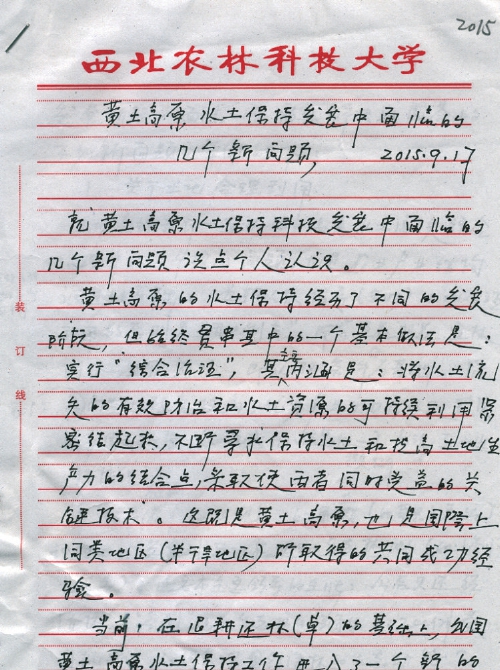 2015
西北农林科技大学
黄土高原水土保持发展中面临的
几个新问题,
2015.9.17
就黄土高原水土保持科技发展中面临的
几个新问题谈点个人认识。
黄土高原的水土保持经历了不同的发展
阶段,但始终贯串其中的一个基本做法是:
实行“综合治理”,其主要内涵是:将水土流
失的有效防治和水土资源的可持续利用紧
密结起来,不断寻求保持水土和提高土地生
产力的结合点,采取使两者同时受益的关
键技术。这既是黄土高原,也是国际上
同类地区(半干旱地区)所取得的共同成功经
验。
当前,在退耕还林(草)的基础上,我国
黄土高原水土保持工作进入了一个新的
装
订
线